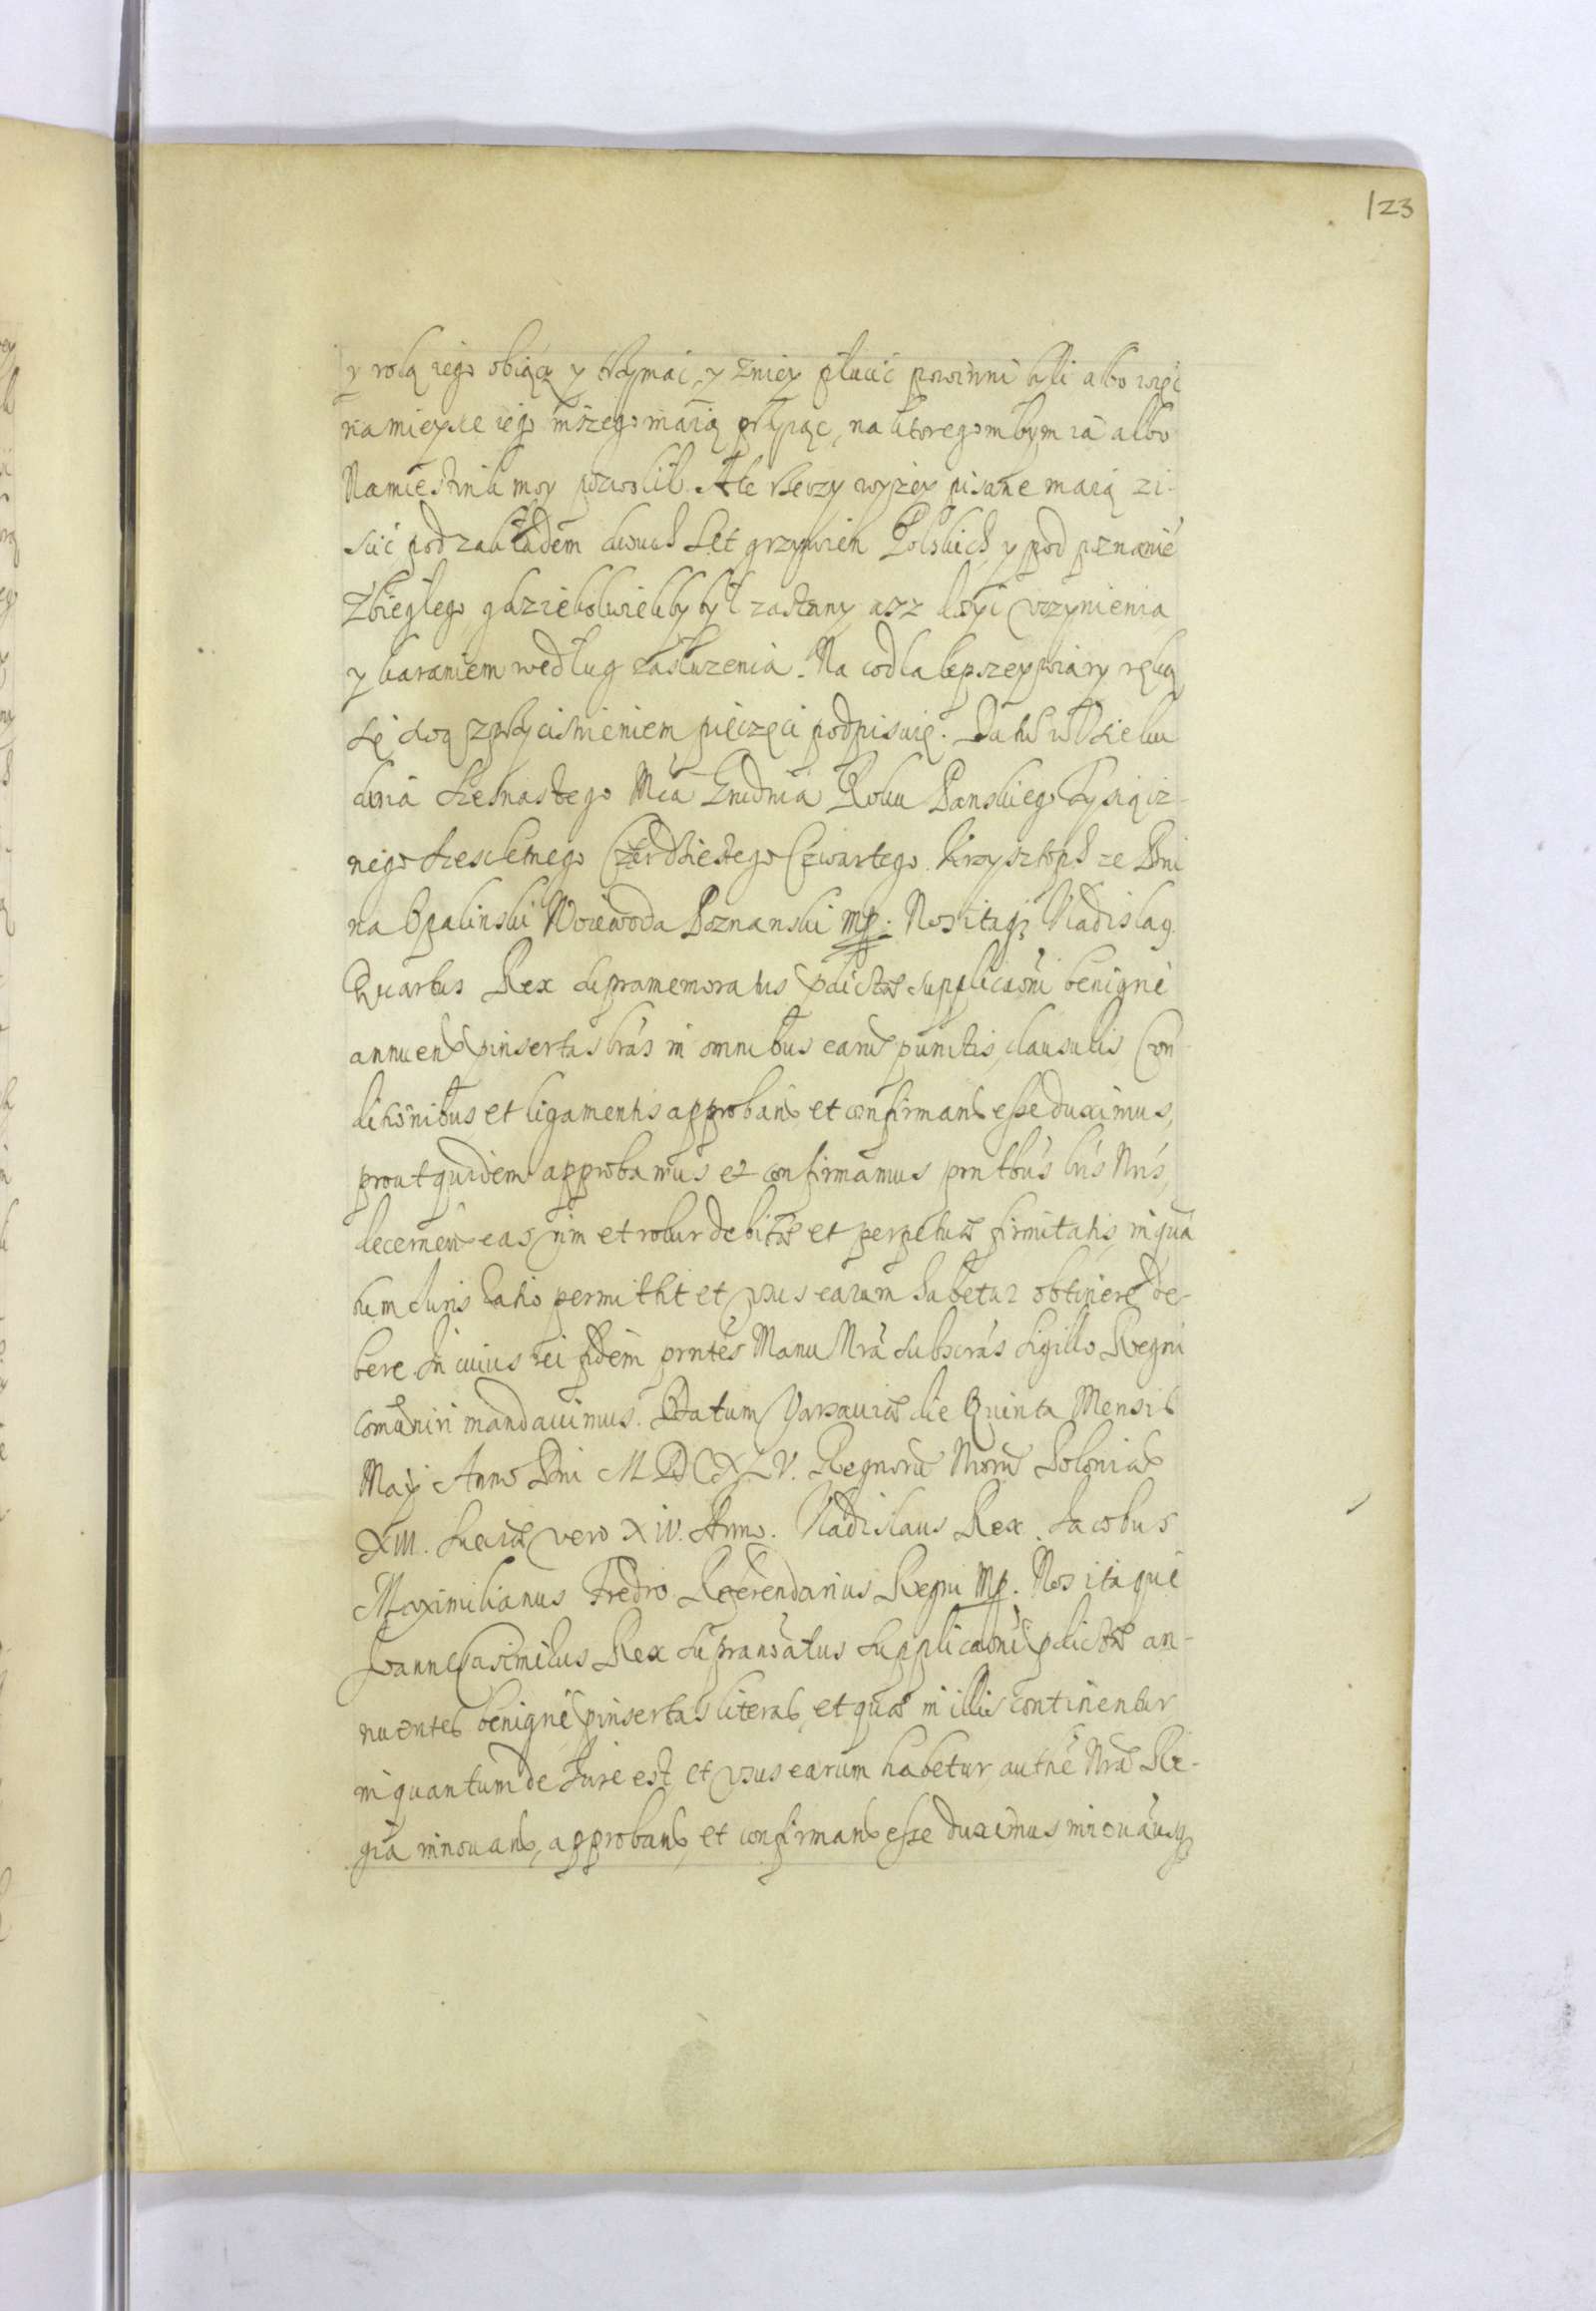 123
y rolą iego obiąć y trzymać, y zniey płacić powinni byli albo więc
na mieysce iego inszego maią przyiąc, na ktoregom bym ia albo
Namiestnik moy pozwolił. Te rzeczy wyżey pisane maią zi-
scić pod zakładem dwuch set grzywien Polskich, y pod poznanie
Zbiegłego gdziekolwiekby był zastany asz dosyć vczynienia
y karaniem według zasłuzenia. Na co dla lepszey wiary ręką
się swoą z przyciśnieniem pieczęci podpisuię. Datū w
dnia szesnastego Mca Grudnia Roku Panskiego Tysiącz-
nego szescsetnego Czterdziestego Czwartego. Krzysztoph ze Bni
na Opalinski Woiewoda Poznanski mp. Nos itaq; Vladislaq
Quartus Rex supramemoratus pdictæ supplicaōni benigne
annuen. pinsertas lrás in omnibus earū punctis, clausulis, Con
ditionibus, et ligamentis approban. et confirman. esse duximus,
prout quidem approbamus et confirmamus pntbús lrís Nrís,
decernen. eas vim et robur debitæ et perpetuæ firmitatis, inquā
tum Iuris ratio permittit et vsus earum habetur obtinere de-
bere. In cuius rei fidem prntés Manu Nrá subscrás Sigillo Regni
comūniri mandauimus. Datum Varsauiæ die Quinta Mensis
Maÿ Anno Dni MDCXLV. Regnorū Nrorū Poloniæ
XIII. Sueciæ vero XIV. Anno. Vladislaus Rex. Iacobus
Maximilianus Fredro Referendarius Regni mp. Nos itaque
Ioannes Casimirus Rex supranoātus supplicaōni pdictæ an-
nuentes benigne pinsertas literas, et quæ in illis continentur
inquantum de Iure est, et vsus earum habetur, authē Nrā Re-
gia innouan., approban. et confirman. esse duximus innouāusq;